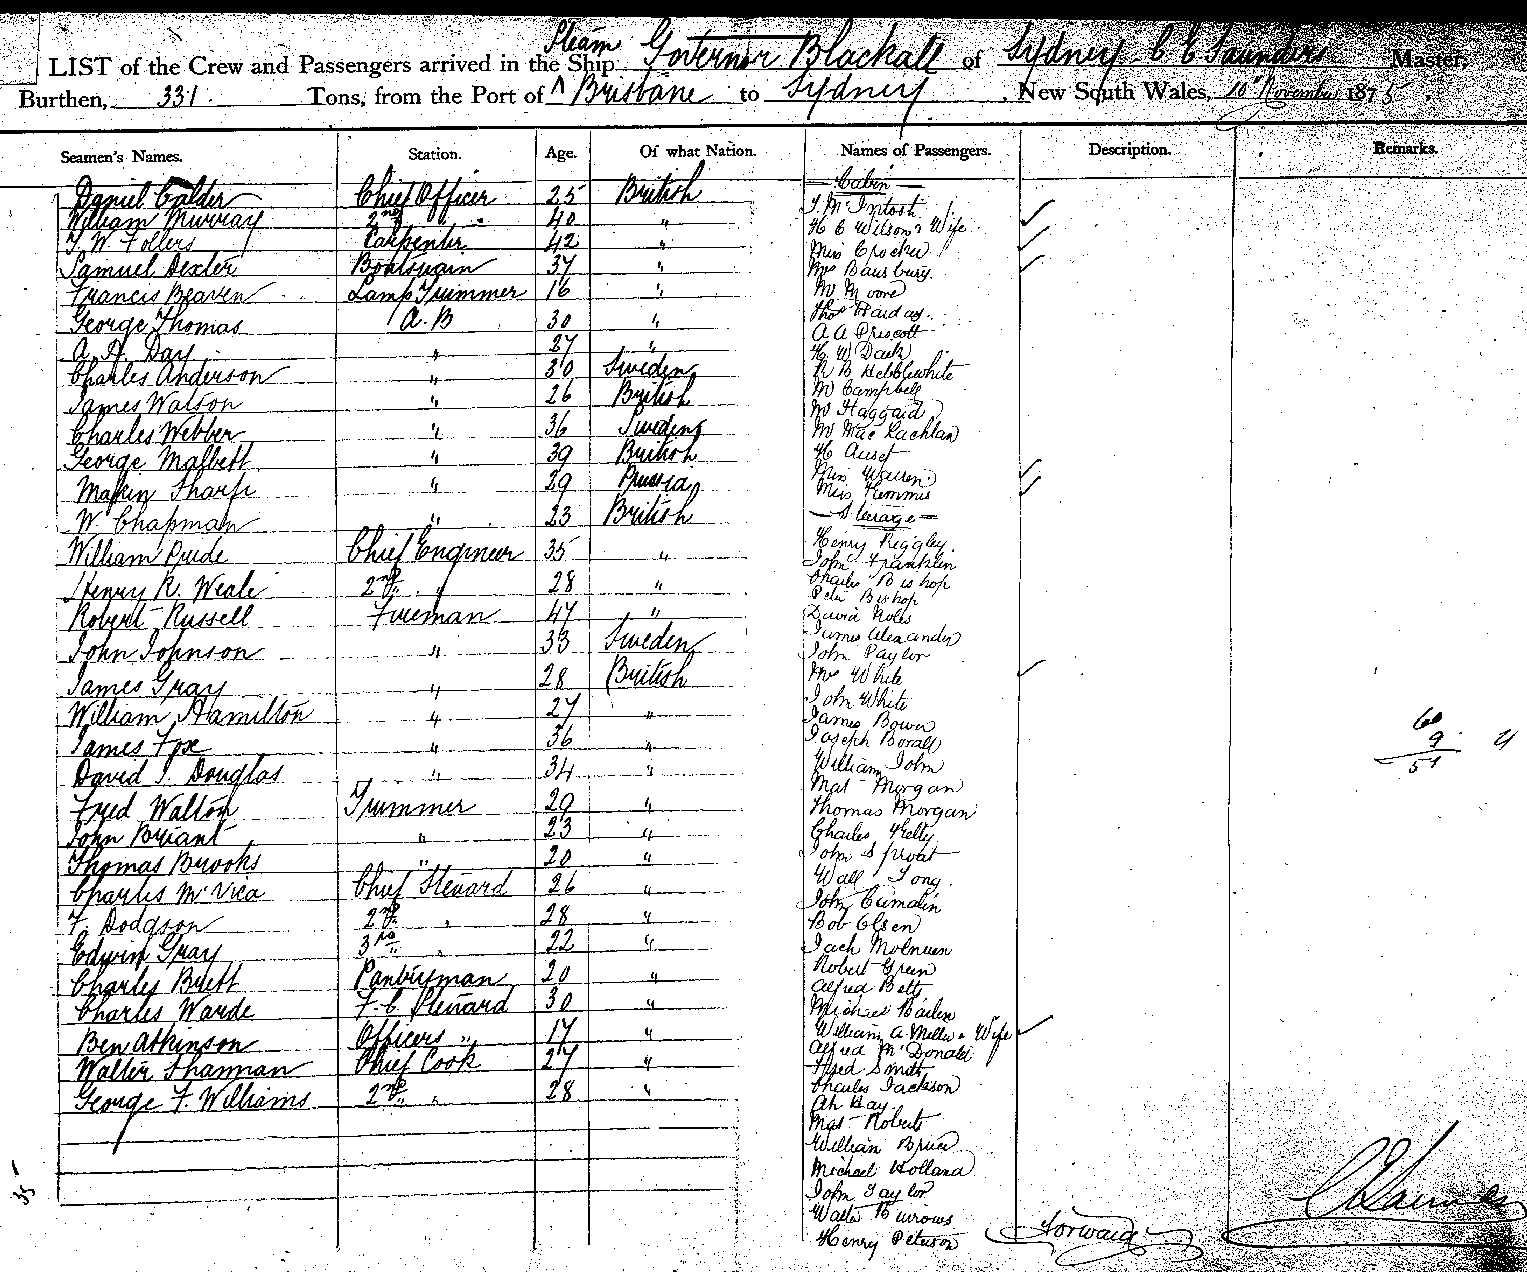 Steam
LIST of the Crew and Passengers arrived in the Ship Governor Blackall of Sydney C C Saunders Master,
Burthen, 331 Tons, from the Port of Brisbane to Sydney, New South Wales, 10" November 1875
Seamen's Names. Station. Age. Of what Nation. Names of Passengers. Description. Remarks.
Daniel Calder Chief Officer 25 British
William Murray 2nd " 40 "
T. W. Follers Carpenter 42 "
Samuel Dexter Boatswain 37 "
Francis Beaven Lamp Trimmer 16 "
George Thomas A.B 30 "
A. A. Day " 27 "
Charles Anderson " 30 Sweden
James Watson " 26 British
Charles Webber " 36 Sweden
George Malbett " 39 British
Martin Sharpe " 29 Prussia
W. Chapman " 23 British
William Pride Chief Engineer 35 "
Henry R. Weale 2nd " 28 "
Robert Russell Fireman 47 "
John Johnson " 33 Sweden
James Gray " 28 British
William Hamilton " 27 "
James Fox " 36 "
David J. Douglas " 34 "
Fred Walton Trimmer 29 "
John Briant " 23 "
Thomas Brooks " 20 "
Charles McVica Chief Steward 26 "
F. Dodgson 2nd " 28 "
Edwin Gray 3rd " 22 "
Charles Brett Pantryman 20 "
Charles Warde F. C Steward 30 "
Ben Atkinson Officers " 17 "
Walter Shannan Chief Cook 27 "
George F. Williams 2nd " 28 "
35
— Cabin —
J. McIntosh
H C Wilson & Wife
Miss Crocker
Mrs Bansbury
Mr Moore
Thos Harday
A A Priscott
H W Dark
R B Hebblewhite
Mr Campbell
Mr Haggard
Mr Mac Lachlan
H Auset
Miss Warren
Miss Hemmis
— Steerage —
Henry Riggley
John Franklin
Charles Bishop
Peter Bishop
David Noles
James Alexander
John Taylor
Mrs White
John White
James Bower
Joseph Borall
William John
Mat Morgan
Thomas Morgan
Charles Kelly
John Sproat
Wall Tong
John Cumalin
Bob Olsen
Jack Molnuen
Robert Green
Alfred Betts
Michael Bailen
William A. Miller & Wife
Alfred McDonald
Fred Smith
Charles Jackson
Ah Bay
Mat Roberts
William Bruce
Michael Holland
John Taylor
Walter Burrows
Henry Peterson
Forward
60
9
51
C C Saunders